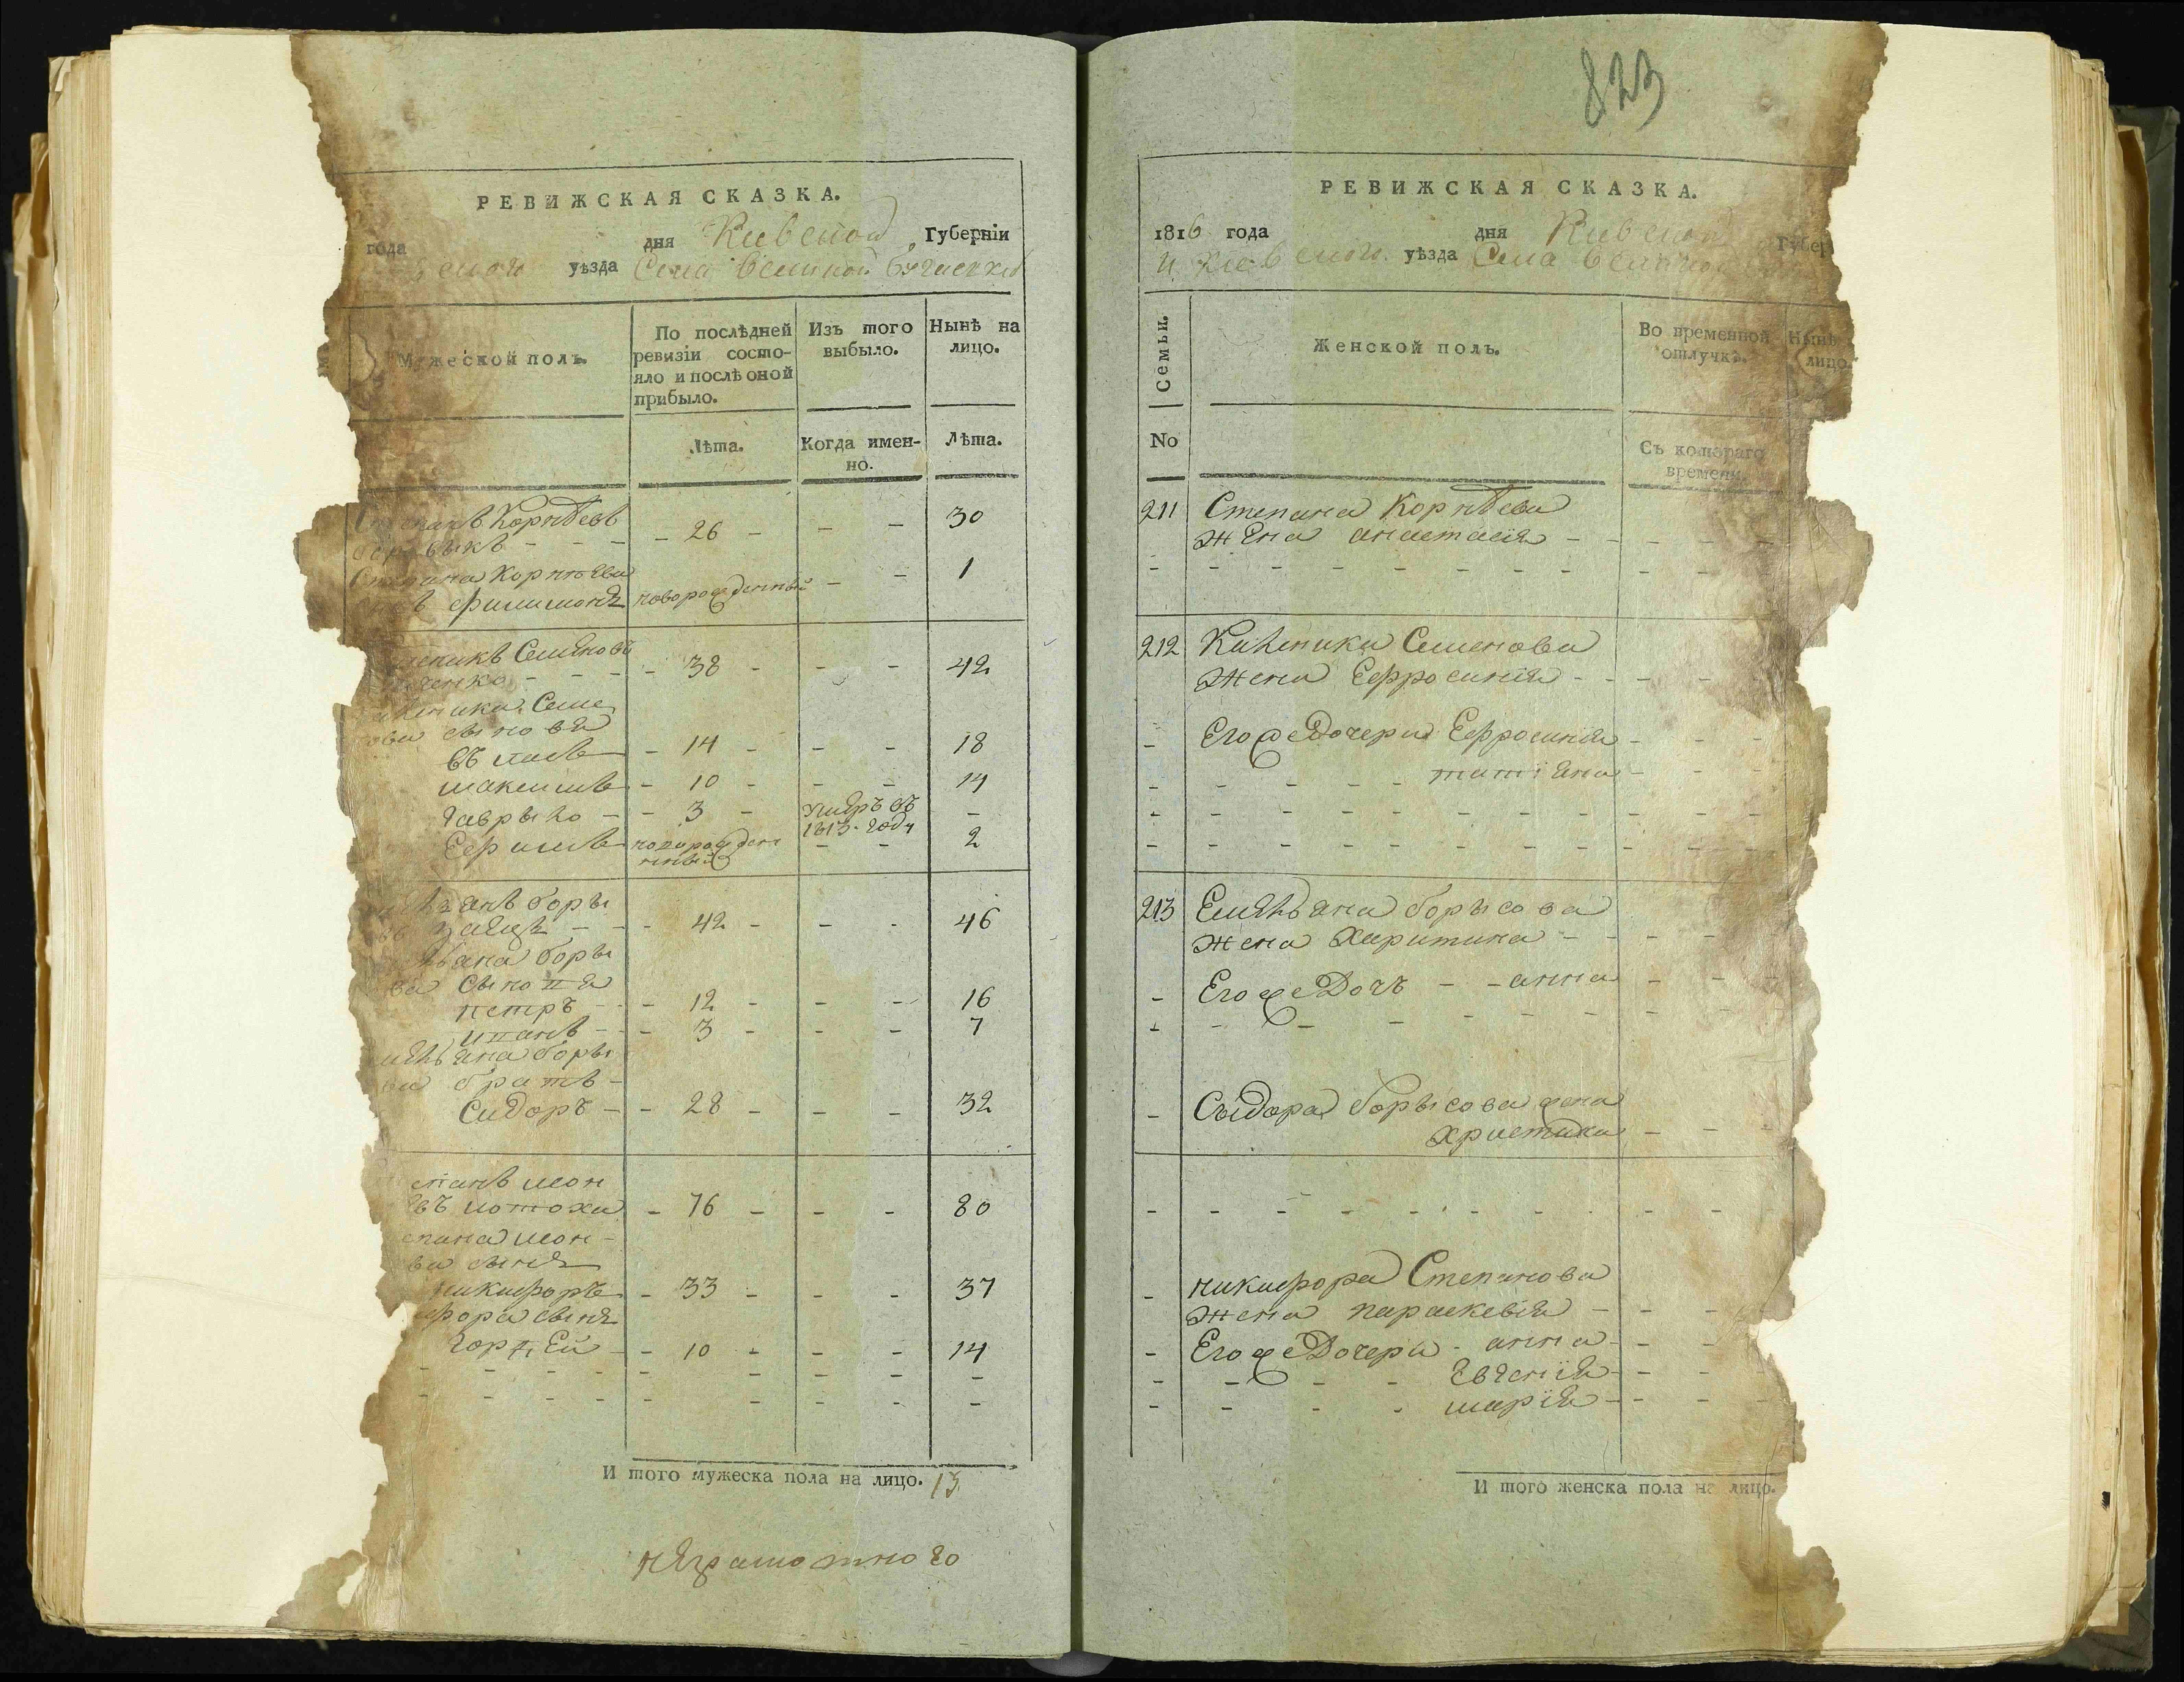 РЕВИЖСКАЯ СКАЗКА.
года дня Киевской Губерніи
уѣзда Села Великой
Мужеской полъ.
По послѣдней ревизіи состо-
яло и послѣ оной
прибыло.
Изъ того
выбыло.
Нынѣ на
лицо.
Лѣта.
Когда имен-
но.
Лѣта.
Корнѣевъ
- - - 26 - - - 30
Степана Корнѣева
Филимонъ новорожденный - - 1
Семеновъ
- - - 38 - - - 42
Семе
ова сыновья
- 14 - - - 18
максимъ - 10 - - - 14
гаврыло - - 3 - умеръ въ -
1813 году
Ефимъ новорожден - - 2
нный
анъ боры
заецъ - - - 42 - - - 46
ьяна боры
ва сыновья
петръ - - 12 - - - 16
иванъ - - 3 - - - 7
ельяна боры
ва братъ -
Сидоръ - - 28 - - - 32
епанъ
- 76 - - - 80
епана
ва сынъ
никифоръ - 33 - - - 37
фора сынъ
гордей - - 10 - - - 14
И того мужеска пола на лицо. 13
неграмотного
823
РЕВИЖСКАЯ СКАЗКА.
1816 года дня Киевской Губер
Киевского уѣзда Села Великой
Семьи.
No
Женской полъ.
Во временной
отлучкѣ.
Нынѣ
лицо.
Съ котораго
времени.
211 Степана Корнѣева
жена анастасія - - - - -
212 Калиника Семенова
жена Ефросинія - - - - -
- Его же Дочери Ефросинія - - -
- - - - - татіяна - - -
213 Емельяна борысова
жена Харитина - - - - -
- Его же Дочь - - анна - - -
- Сыдора борысова жена
Христина - - -
- никифора Степанова
жена параскевія - - - -
- Его же Дочери - анна - - -
- - - - евгенія - - -
- - - - марія - - -
И того женска пола на лицо.